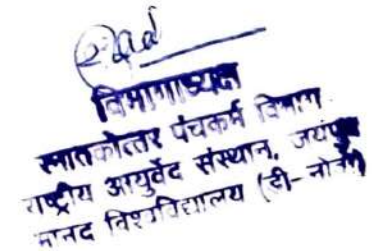 विभागाध्यक्ष
स्नातकोत्तर पंचकर्म विभाग
राष्ट्रीय आयुर्वेद संस्थान, जयपुर
मानद विश्वविद्यालय (डी- नोवो)